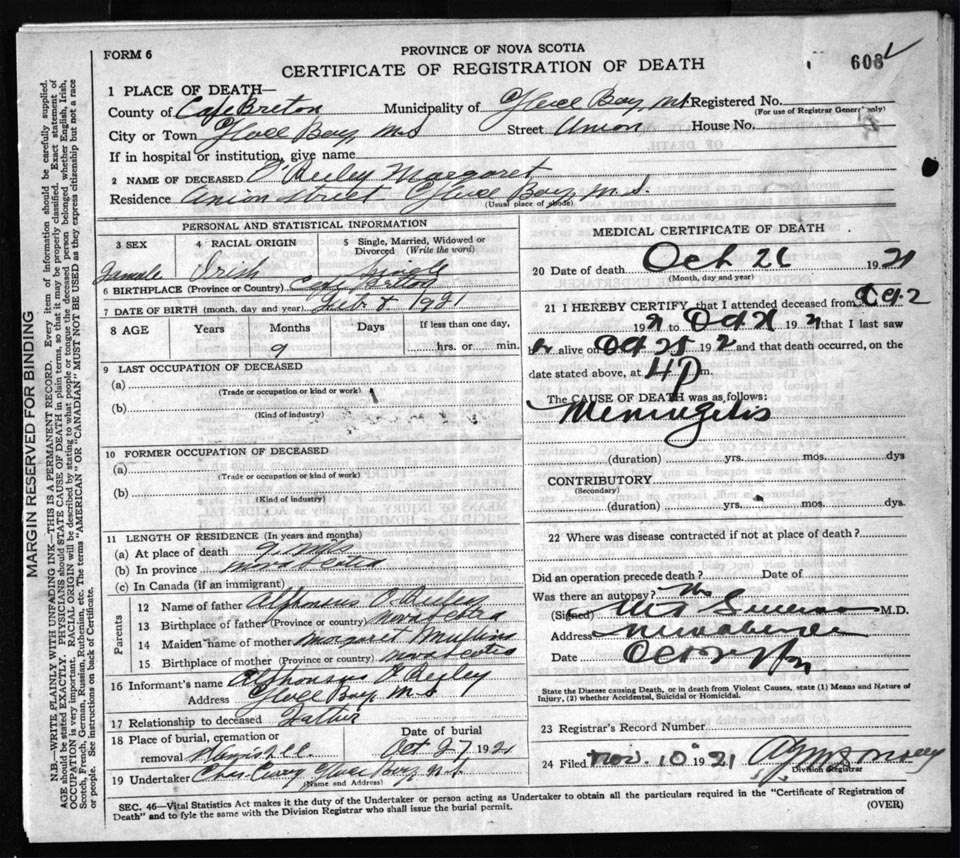 FORM 6
PROVINCE OF NOVA SCOTIA
CERTIFICATE OF REGISTRATION OF DEATH
608
1 PLACE OF DEATH—
County of Cape Breton Municipality of Glace Bay, N.S Registered No.
(For use of Registrar General only)
City or Town Glace Bay N.S Street Union House No.
If in hospital or institution, give name
2 NAME OF DECEASED O'Reiley Margaret
Residence Union Street Glace Bay N.S.
(Usual place of abode)
PERSONAL AND STATISTICAL INFORMATION
3 SEX 4 RACIAL ORIGIN 5 Single, Married, Widowed or Divorced (Write the word)
Female Irish Single
6 BIRTHPLACE (Province or Country) Cape Breton
7 DATE OF BIRTH (month, day and year) 8 1921
8 AGE Years Months Days If less than one day,
9 hrs. or min.
9 LAST OCCUPATION OF DECEASED
(a)
(Trade or occupation or kind or work)
(b)
(Kind of industry)
10 FORMER OCCUPATION OF DECEASED
(a)
(Trade or occupation or kind of work)
(b)
(Kind of industry)
11 LENGTH OF RESIDENCE (In years and months)
(a) At place of death 9
(b) In province Nova Scotia
(c) In Canada (if an immigrant)
Parents
12 Name of father Alphonsus O'Reiley
13 Birthplace of father (Province or country) Nova Scotia
14 Maiden name of mother Margaret Mullins
15 Birthplace of mother (Province or country) Nova Scotia
16 Informant's name Alphonsus O'Reiley
Address Glace Bay N.S
17 Relationship to deceased Father
18 Place of burial, cremation or removal Date of burial
Oct 27 1921
19 Undertaker Chas. Curry Glace Bay N.S.
(Name and Address)
MEDICAL CERTIFICATE OF DEATH
20 Date of death Oct 26 1921
(Month, day and year)
21 I HEREBY CERTIFY, that I attended deceased from Oct 2
192 to Oct 192 that I last saw
h alive on Oct 25 192 and that death occurred, on the
date stated above, at 4 P m.
The CAUSE OF DEATH was as follows:
Meningitis
(duration) yrs. mos. dys
CONTRIBUTORY
(Secondary)
(duration) yrs. mos. dys.
22 Where was disease contracted if not at place of death?
Did an operation precede death? Date of
Was there an autopsy? No
(Signed) M.D.
Address New Aberdeen
Date Oct
State the Disease causing Death, or in death from Violent Causes, state (1) Means and Nature of
Injury, (2) whether Accidental, Suicidal or Homicidal.
23 Registrar's Record Number
24 Filed Nov. 10 1921
Division Registrar
SEC. 46—Vital Statistics Act makes it the duty of the Undertaker or person acting as Undertaker to obtain all the particulars required in the "Certificate of Registration of
Death" and to fyle the same with the Division Registrar who shall issue the burial permit.
(OVER)
MARGIN RESERVED FOR BINDING
N.B.—WRITE PLAINLY WITH UNFADING INK—THIS IS A PERMANENT RECORD. Every item of information should be carefully supplied.
AGE should be stated EXACTLY. PHYSICIANS should STATE CAUSE OF DEATH in plain terms, so that it may be properly classified. Exact statement of
OCCUPATION is very important. RACIAL ORIGIN will be described by stating to what people or tongue the deceased person belonged whether English, Irish,
Scotch, French, German, Russian, Ruthenian, etc. The terms "AMERICAN" OR "CANADIAN" MUST NOT BE USED as they express citizenship but not a race
or people. See instructions on back of Certificate.